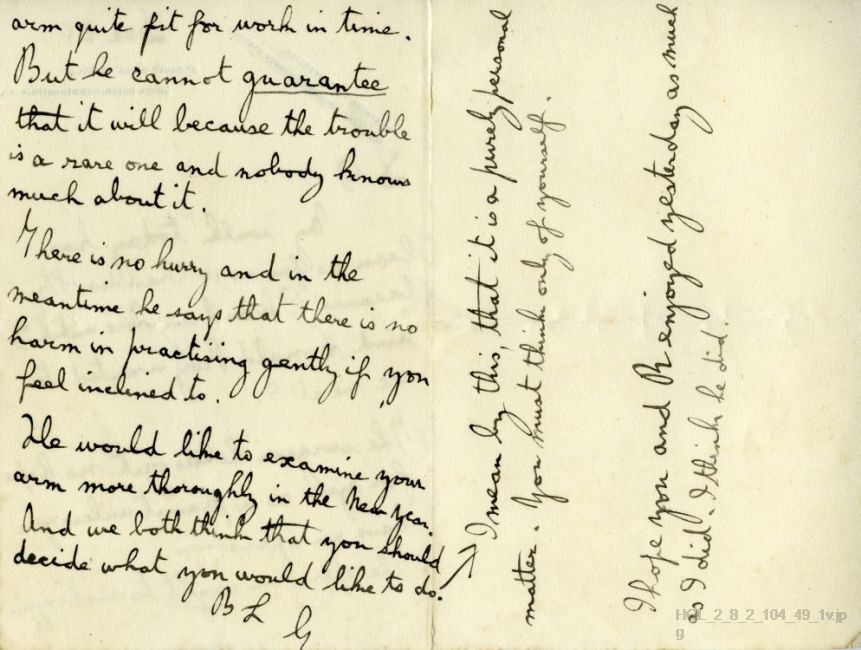 arm quite fit for work in time.
But he cannot guarantee
that it will because the trouble
is a rare one and nobody knows
much about it.
There is no hurry and in the
meantime he says that there is no
harm in practising gently if you
feel inclined to.
He would like to examine your
arm more thoroughly in the New Year.
And we both think that you should
decide what you would like to do.
B L
G
I mean by this, that it is a purely personal
matter. You must think only of yourself.
I hope you and R enjoyed yesterday as much
as I did. I think he did.
HGL_2_8_2_104_49_1v.jp
g